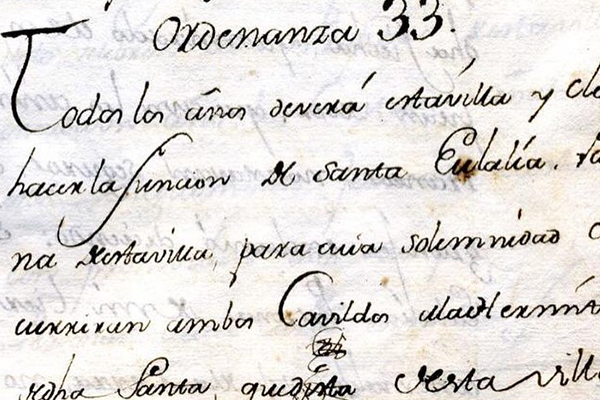 Ordenanza 33.
Todos los años deverá esta villa y Cle
hacer la funcion de Santa Eulalia. Pa
na de esta villa, para cuia solemnidad
curriran ambos Cavildos a la de
Santa, que esta villa